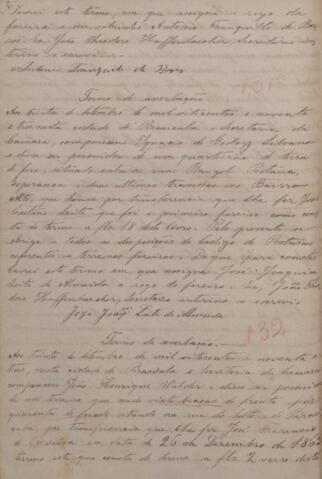 Lavrei este termo em que assigna a rogo da
foreira o seu sobrinho Antonio Tranquillo de Bar
ros. Eu João Theodoro Hauffenbaecher, Secretario
escrevi.
Antonio Tranquillo de Barros
131
Termo de averbação
Aos trinta de Setembro de mil oitocentos e noventa
e tres nesta cidade de Piracicaba, e Secretaria da
Camara, compareceu Ignacio de Godoy
e disse ser possuidor de um quarteirão de terra
de foro, situado entre as ruas Rangel Pestana,
Esperança e duas ultimas travessas no Bairro
Alto, que houve por transferencia que lhe fez José
Caetano que foi o primeiro foreiro como
do termo a fls 18 do livro. Pelo presente se
obriga a todas as disposições do Codigo de Posturas
referentes a terrenos foreiros. Do que para constar
lavrei este termo em que assigna José Joaquim
Leite de Almeida a rogo do foreiro. Eu, João Theo
doro Hauffenbaecher, Secretario o escrevi.
José Joaqm Leite de Almeida
132
Termo de averbação
Aos trinta de Setembro de mil oitocentos e noventa e
tres, nesta cidade de Piracicaba e Secretaria da Camara
compareceu João Henrique e disse ser possuidor
de um terreno que mede vinte braças de frente por
quarenta de fundo situado na rua de
por transferencia que lhe fez José
em data de 26 de Dezembro de
termo este que consta do termo a fls 2 verso deste